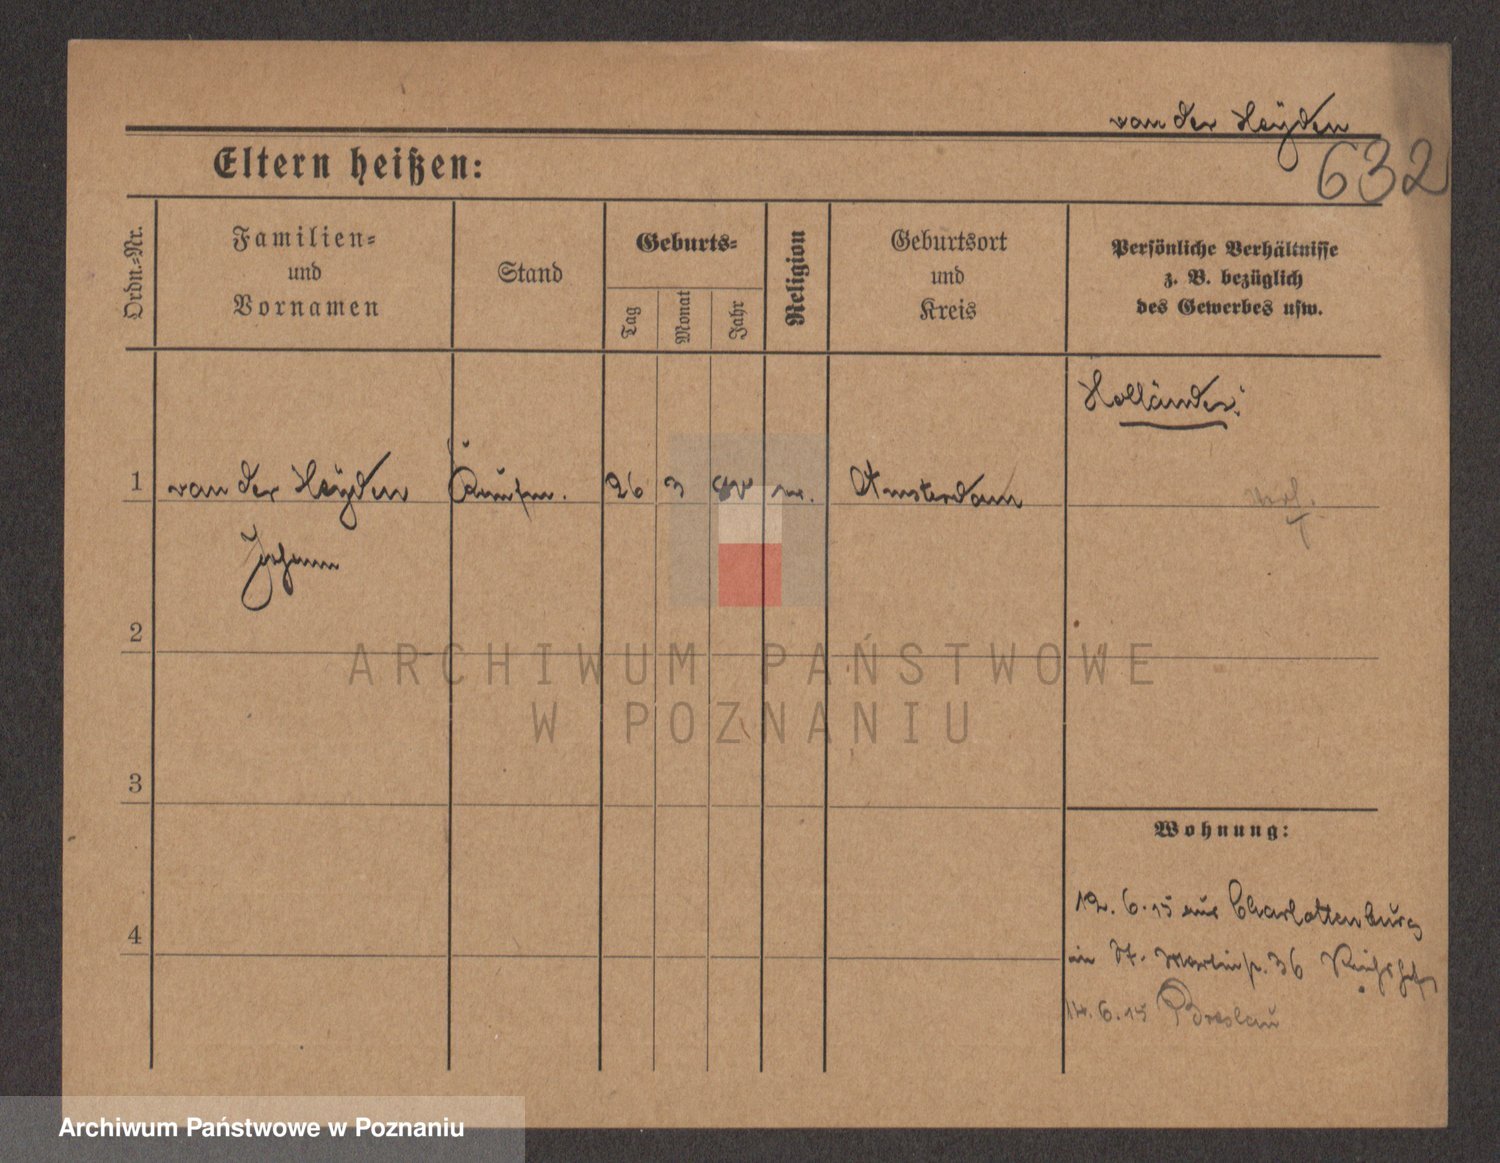 van der Heÿden
632
Eltern heißen:
Ordn.-Nr.
Familien-
und
Vornamen
Stand
Geburts-
Tag
Monat
Jahr
Religion
Geburtsort
und
Kreis
Persönliche Verhältnisse
z. B. bezüglich
des Gewerbes usw.
Holländer!
1 van der Heÿden Kaufm. 26 3 Amsterdam
Johann
2
3
4
Wohnung:
12. 6. 15 aus Charlottenburg
in St. Martinstr. 36
14. 6. 15 Breslau
ARCHIWUM PAŃSTWOWE
W POZNANIU
Archiwum Państwowe w Poznaniu